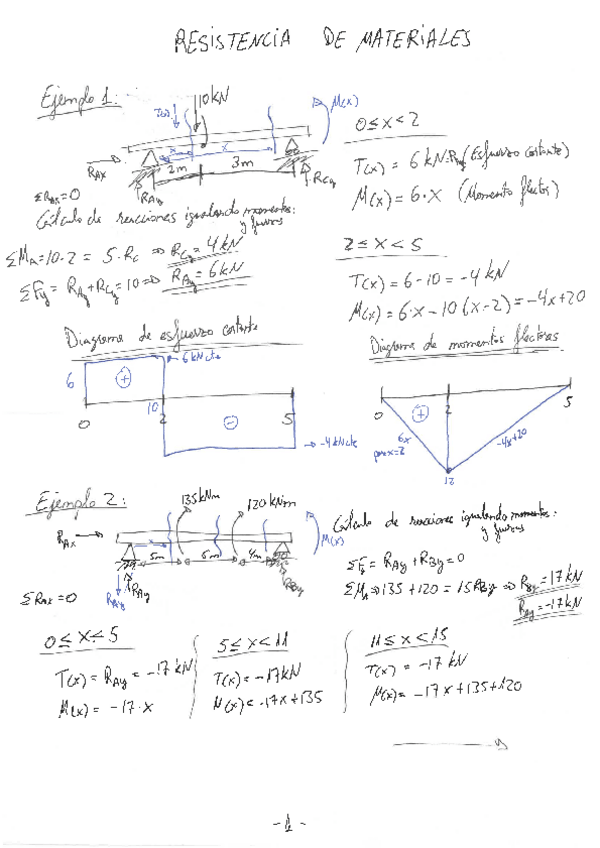 RESISTENCIA DE MATERIALES
Ejemplo 1:
10 kN
M(x)
x
x
2m
3m
R_Ax
R_Ay
R_Cy
ΣR_Ax=0
Cálculo de reacciones igualando momentos:
y fuerzas
ΣM_A=10·2 = 5·R_C ⇒ R_Cy = 4 kN
ΣF_y = R_Ay+R_Cy = 10 ⇒ R_Ay = 6 kN
0 ≤ x < 2
T(x) = 6 kN: R_Ay (Esfuerzo cortante)
M(x) = 6·x (Momento flector)
2 ≤ x < 5
T(x) = 6-10 = -4 kN
M(x) = 6·x - 10(x-2) = -4x+20
Diagrama de esfuerzo cortante
6 kN cte
6
+
10
0
2
5
-
-4 kN cte
Diagrama de momentos flectores
0
2
5
+
6x
para x=2
-4x+20
12
Ejemplo 2:
135 kNm
120 kNm
M(x)
R_Ax
x
5m
6m
4m
R_Ay
R_Ay
R_By
ΣR_Ax = 0
Cálculo de reacciones igualando momentos:
y fuerzas
ΣF_y = R_Ay + R_By = 0
ΣM_A ⇒ 135 + 120 = 15 R_By ⇒ R_By = 17 kN
R_Ay = -17 kN
0 ≤ x ≤ 5
T(x) = R_Ay = -17 kN
M(x) = -17·x
5 ≤ x < 11
T(x) = -17 kN
M(x) = -17x+135
11 ≤ x < 15
T(x) = -17 kN
M(x) = -17x+135+120
- 1 -